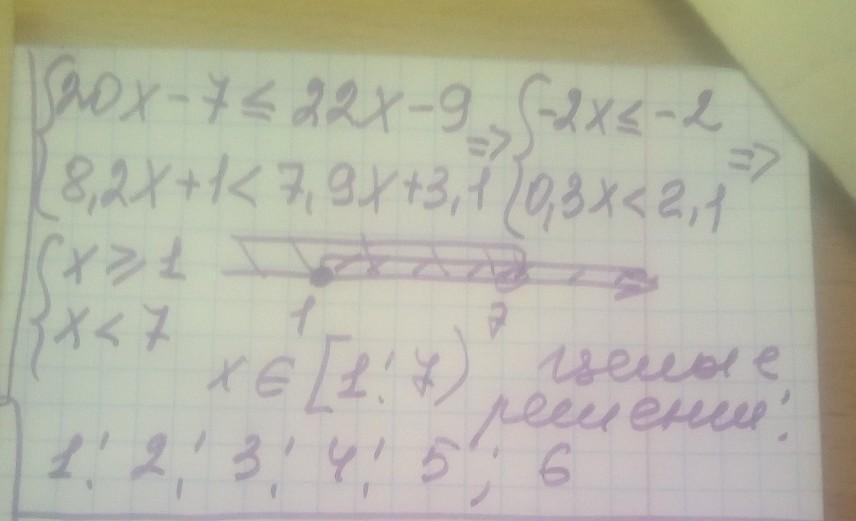 {20x-7≤22x-9 => {-2x≤-2 =>
{8,2x+1<7,9x+3,1 {0,3x<2,1
{x⩾1
{x<7
1 7
x∈[1;7) целые
решения:
1; 2; 3; 4; 5; 6